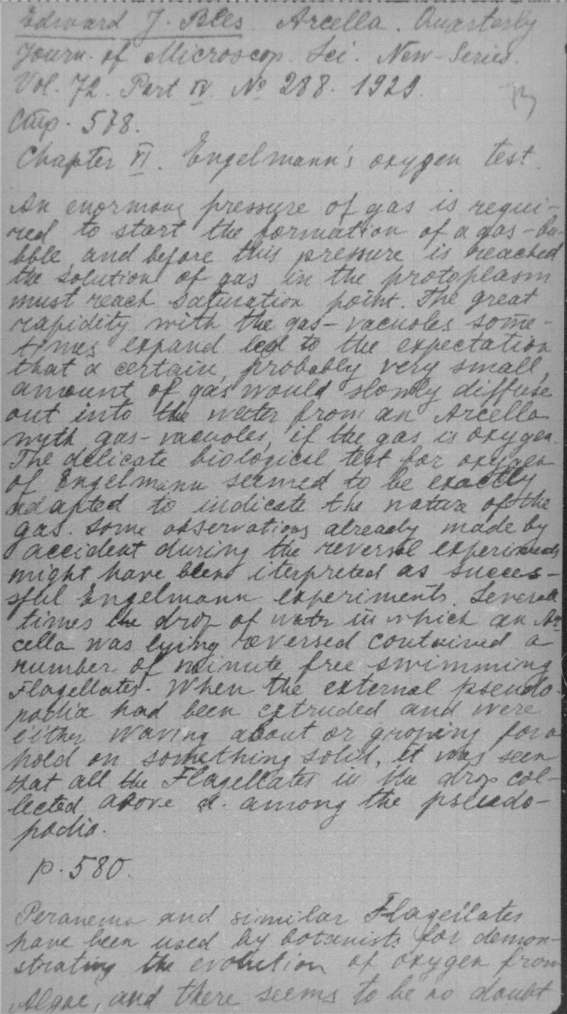 Edward J. Bles. Arcella. Quarterly
Journ. of Microscop. Sci. New-Series.
Vol. 72. Part IV. № 288. 1929.
Стр. 578.
Chapter VI. Engelmann's oxygen test.
An enormous pressure of gas is requi-
red to start the formation of a gas-bu-
bble, and before this pressure is reached
the solution of gas in the protoplasm
must reach saturation point. The great
rapidity with the gas-vacuoles some-
times expand led to the expectation
that a certain, probably very small,
amount of gas would slowly diffuse
out into the water from an Arcella
with gas-vacuoles, if the gas is oxygen.
The delicate biological test for oxygen
of Engelmann seemed to be exactly
adapted to indicate the nature of the
gas. Some observations already made by
accident during the reversal experiments
might have been iterpreted as succes-
sful Engelmann experiments. Several
times the drop of water in which an Ar-
cella was lying reversed contained a
number of minute free swimming
Flagellates. When the external pseudo-
podia had been extruded and were
either waving about or groping for a
hold on something solid, it was seen
that all the Flagellates in the drop col-
lected above a. among the pseudo-
podia.
p. 580.
Peranema and similar Flagellates
have been used by botanists for demon-
strating the evolution of oxygen from
Algae, and there seems to be no doubt